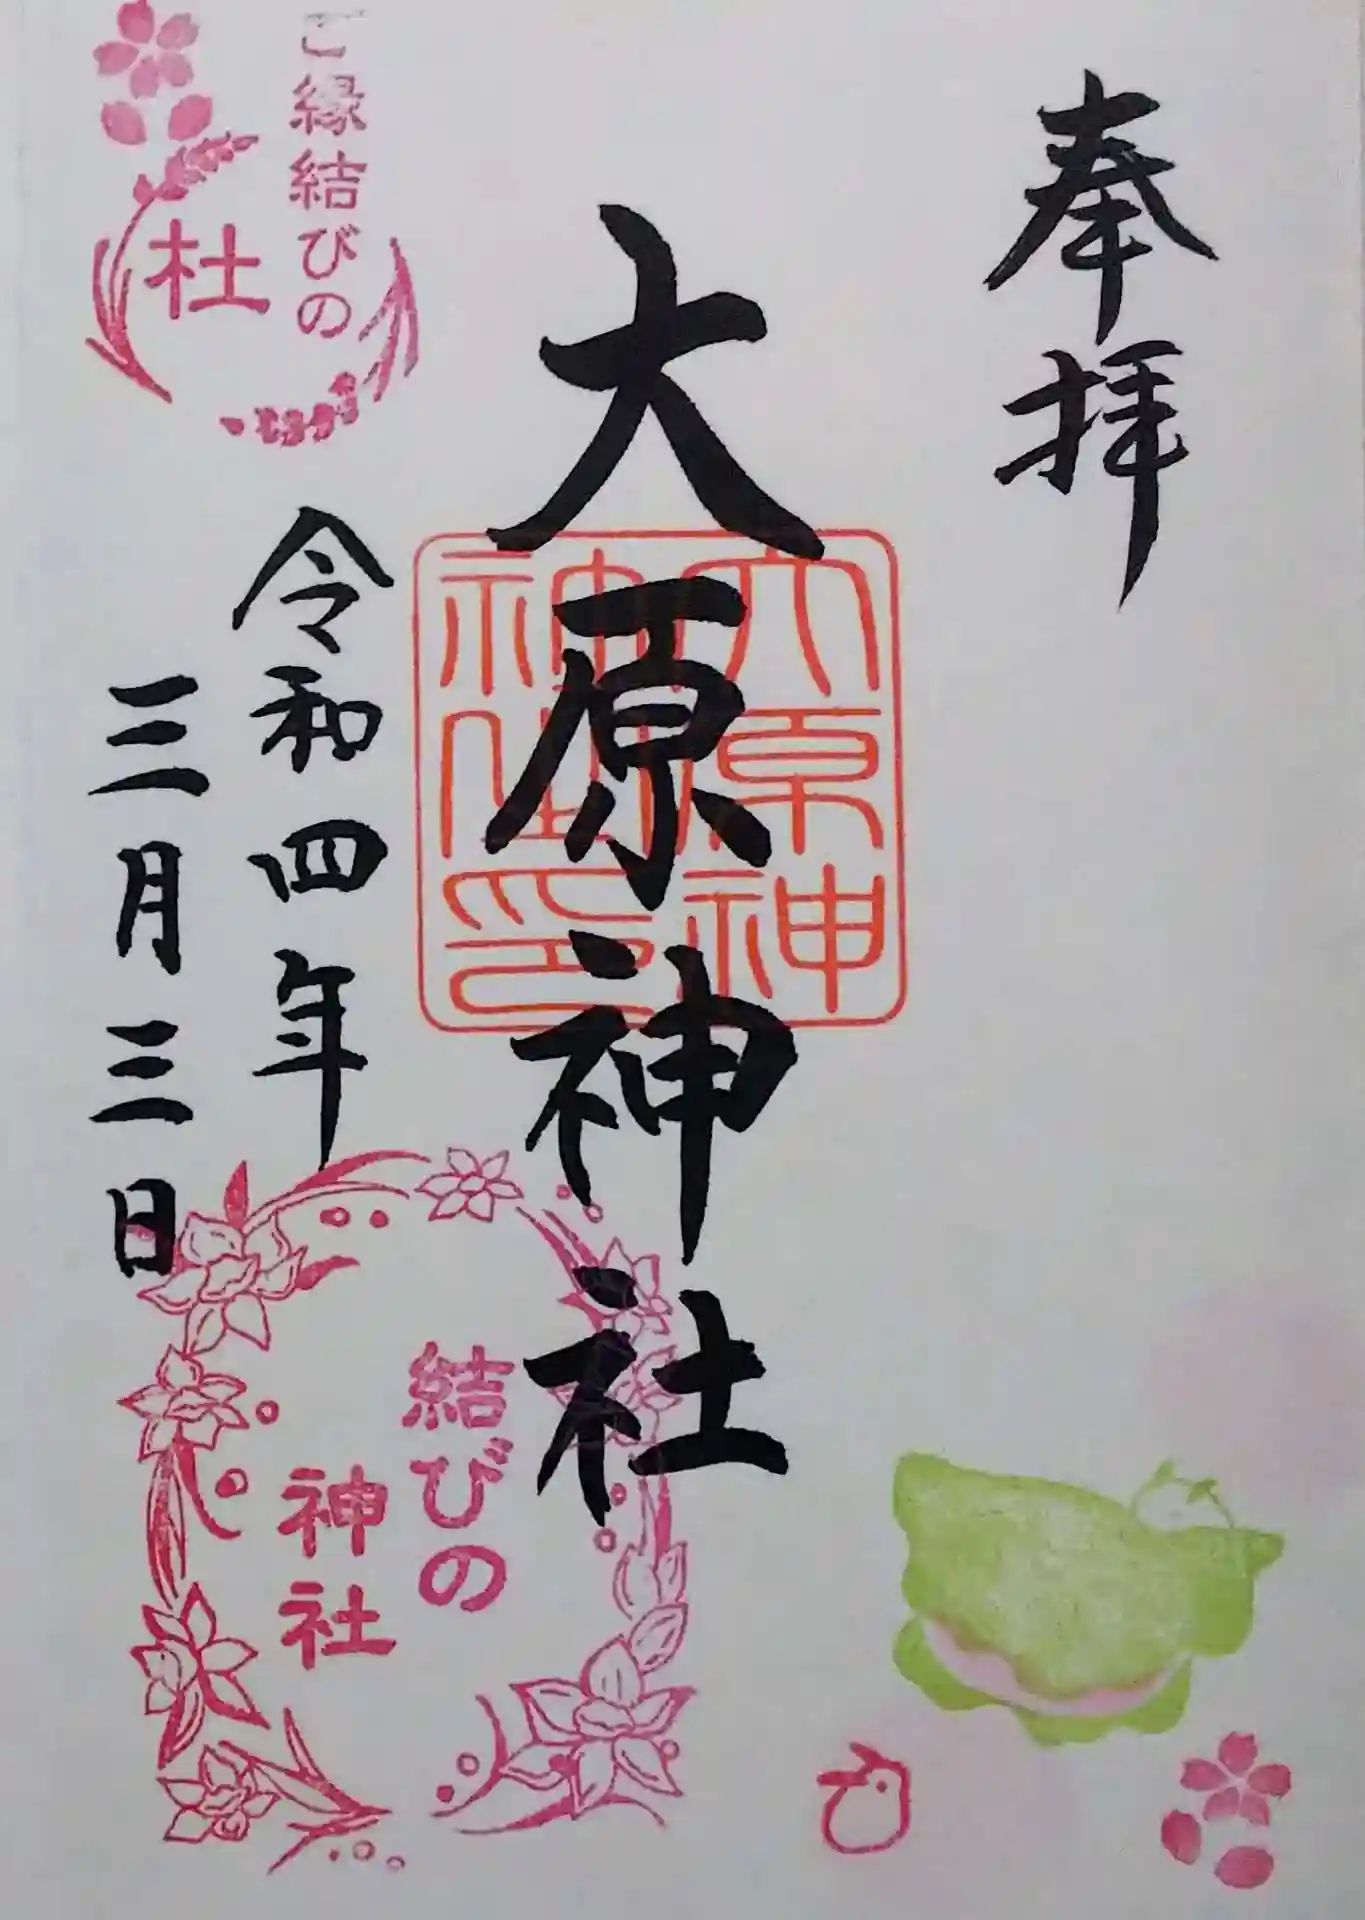 奉拝
大原神社
大原神
神社印
令和四年
三月三日
ご縁結びの
杜
結びの
神社